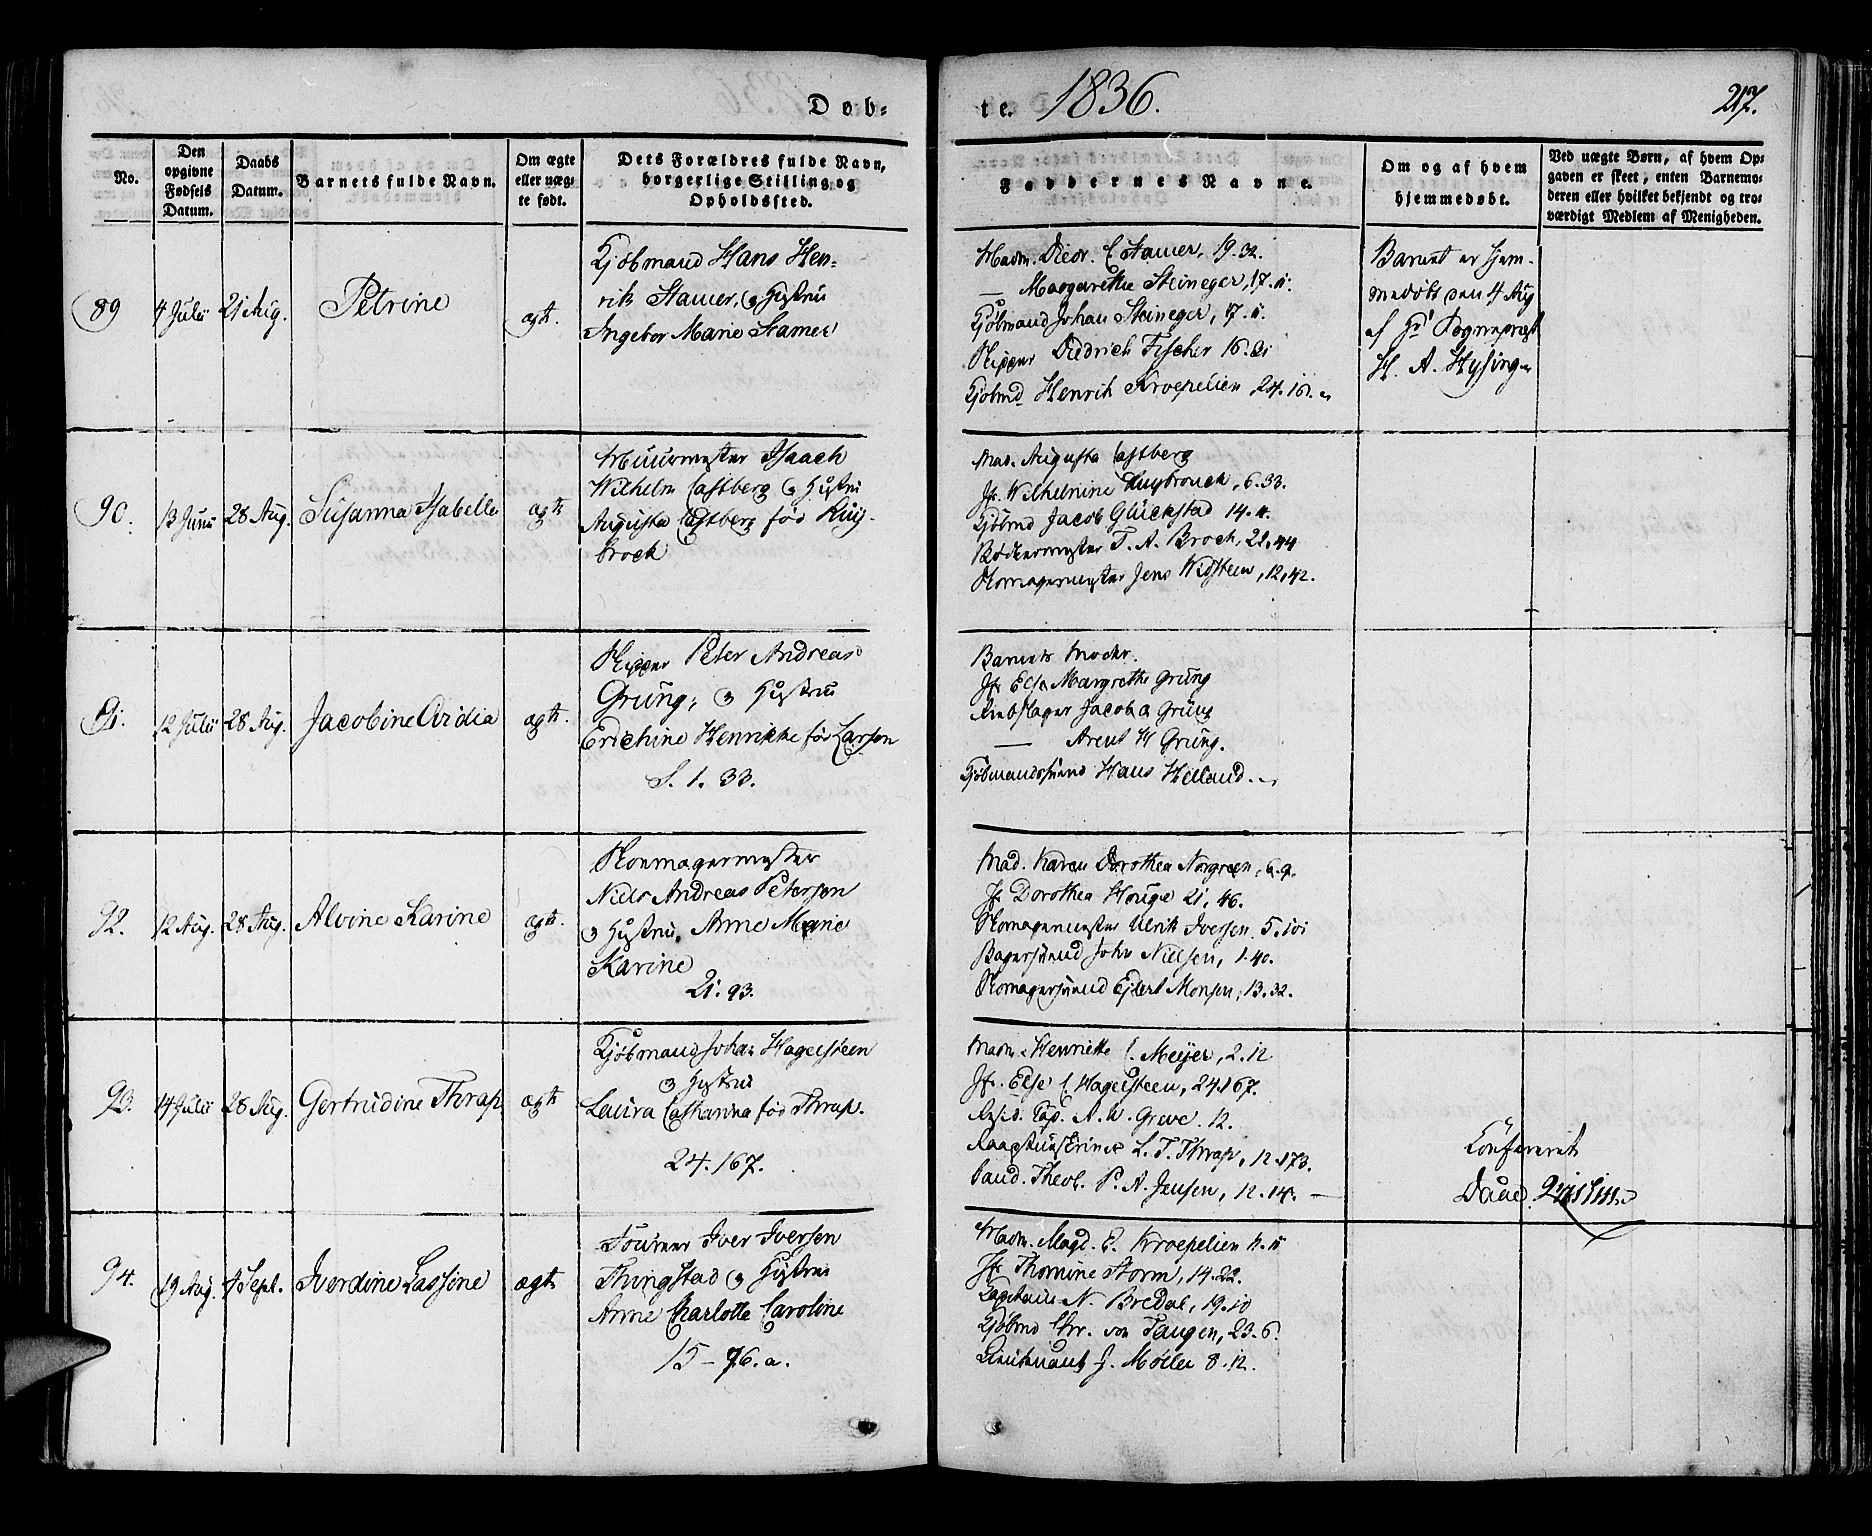 Døb-
te. 1836.
217.
No.
Den opgivne Fødsels Datum.
Daabs Datum.
Barnets fulde Navn.
Om ægte eller uægte født.
Dets Forældres fulde Navn, borgerlige Stilling og Opholdssted.
Faddernes Navne.
Om og af hvem hjemmedøbt.
Ved uægte Børn, af hvem Opgaven er skeet, enten Barnemoderen eller hvilket bekjendt og troværdigt Medlem af Menigheden.
89
4 Julii
21 Aug.
Petrine
ægte.
Kjøbmand Hans Hen-
rik Stamer, og Hustru
Ingebor Marie Stamer
Madm. Diedr. C Stamer, 19.32.
— Margarethe Steineger, 17.
Kjøbmand Johan Steineger, 17.
Skipper Diedrich Fischer 16.
Kjøbmd Henrik Kroepelien 24.16.
Barnet er hjem-
medøbt den 4 Aug
af Hr Sognepræst
H. A. Hysing
90.
13 Junii
28 Aug.
Susanna Isabelle
ægte
Muurmester Isaach
Wilhelm Castberg og Hustru
Augusta Castberg fød Ruys-
broch
Mad. Augusta Castberg
Jfr. Wilhelmine Ruysbrouck, 6.33.
Kjøbmd Jacob Glückstad 14.
Bødkermester T. A. Broch, 22.44
Skomagermester Jens Widsteen, 12.42.
91.
12 Julii
28 Aug.
Jacobine Ovidia
ægte.
Skipper Peter Andreas
Grung, og Hustru
Erichine Henrikke fød Larsen
S. 1. 33.
Barnets Moder.
Jfr Else Margrethe Grung
Rebslager Jacob Grung
— Arent H Grung.
Kjøbmandssvend Hans Heiland.
92.
12 Aug.
28 Aug.
Alvine Karine
ægte.
Skomagermester
Niels Andreas Petersen
og Hustru, Anne Marie
Karine
21.93.
Mad. Karen Dorothea Norgreen, 6.9.
Jfr Dorothea Houge 21, 46.
Skomagermester Ulrik Iversen 5.101
Bagersvend John Nielsen, 1.40.
Skomagersvend Ejlert Monsen, 13.32.
93.
14 Julii
28 Aug.
Gertrudine Thrap
ægte
Kjøbmand Johan Hagelsteen
og Hustru
Laura Catharina fød Thrap.
24.167.
Madm. Henriette C. Meijer, 2.12
Jfr. Else C. Hagelsteen, 24.167.
Resid. Cap. A. W. Greve. 12.
L. T. Thrap, 12.173.
Cand. Theol. P. A. Jensen, 12.14. —
Confereret
94.
19 Aug.
4 Sept.
Iverdine Lassine
ægte
Tourneer Iver Iversen
Thingstad og Hustru
Anne Charlotte Caroline
15-76.a.
Madm. Magd. E. Kroepelien
Jfr Thomine Storm, 14.22.
Capitain N. Bredal, 19.10
Kjøbmd Chr. von Tangen, 23.6.
Lieutenant J. Møller 8.12.